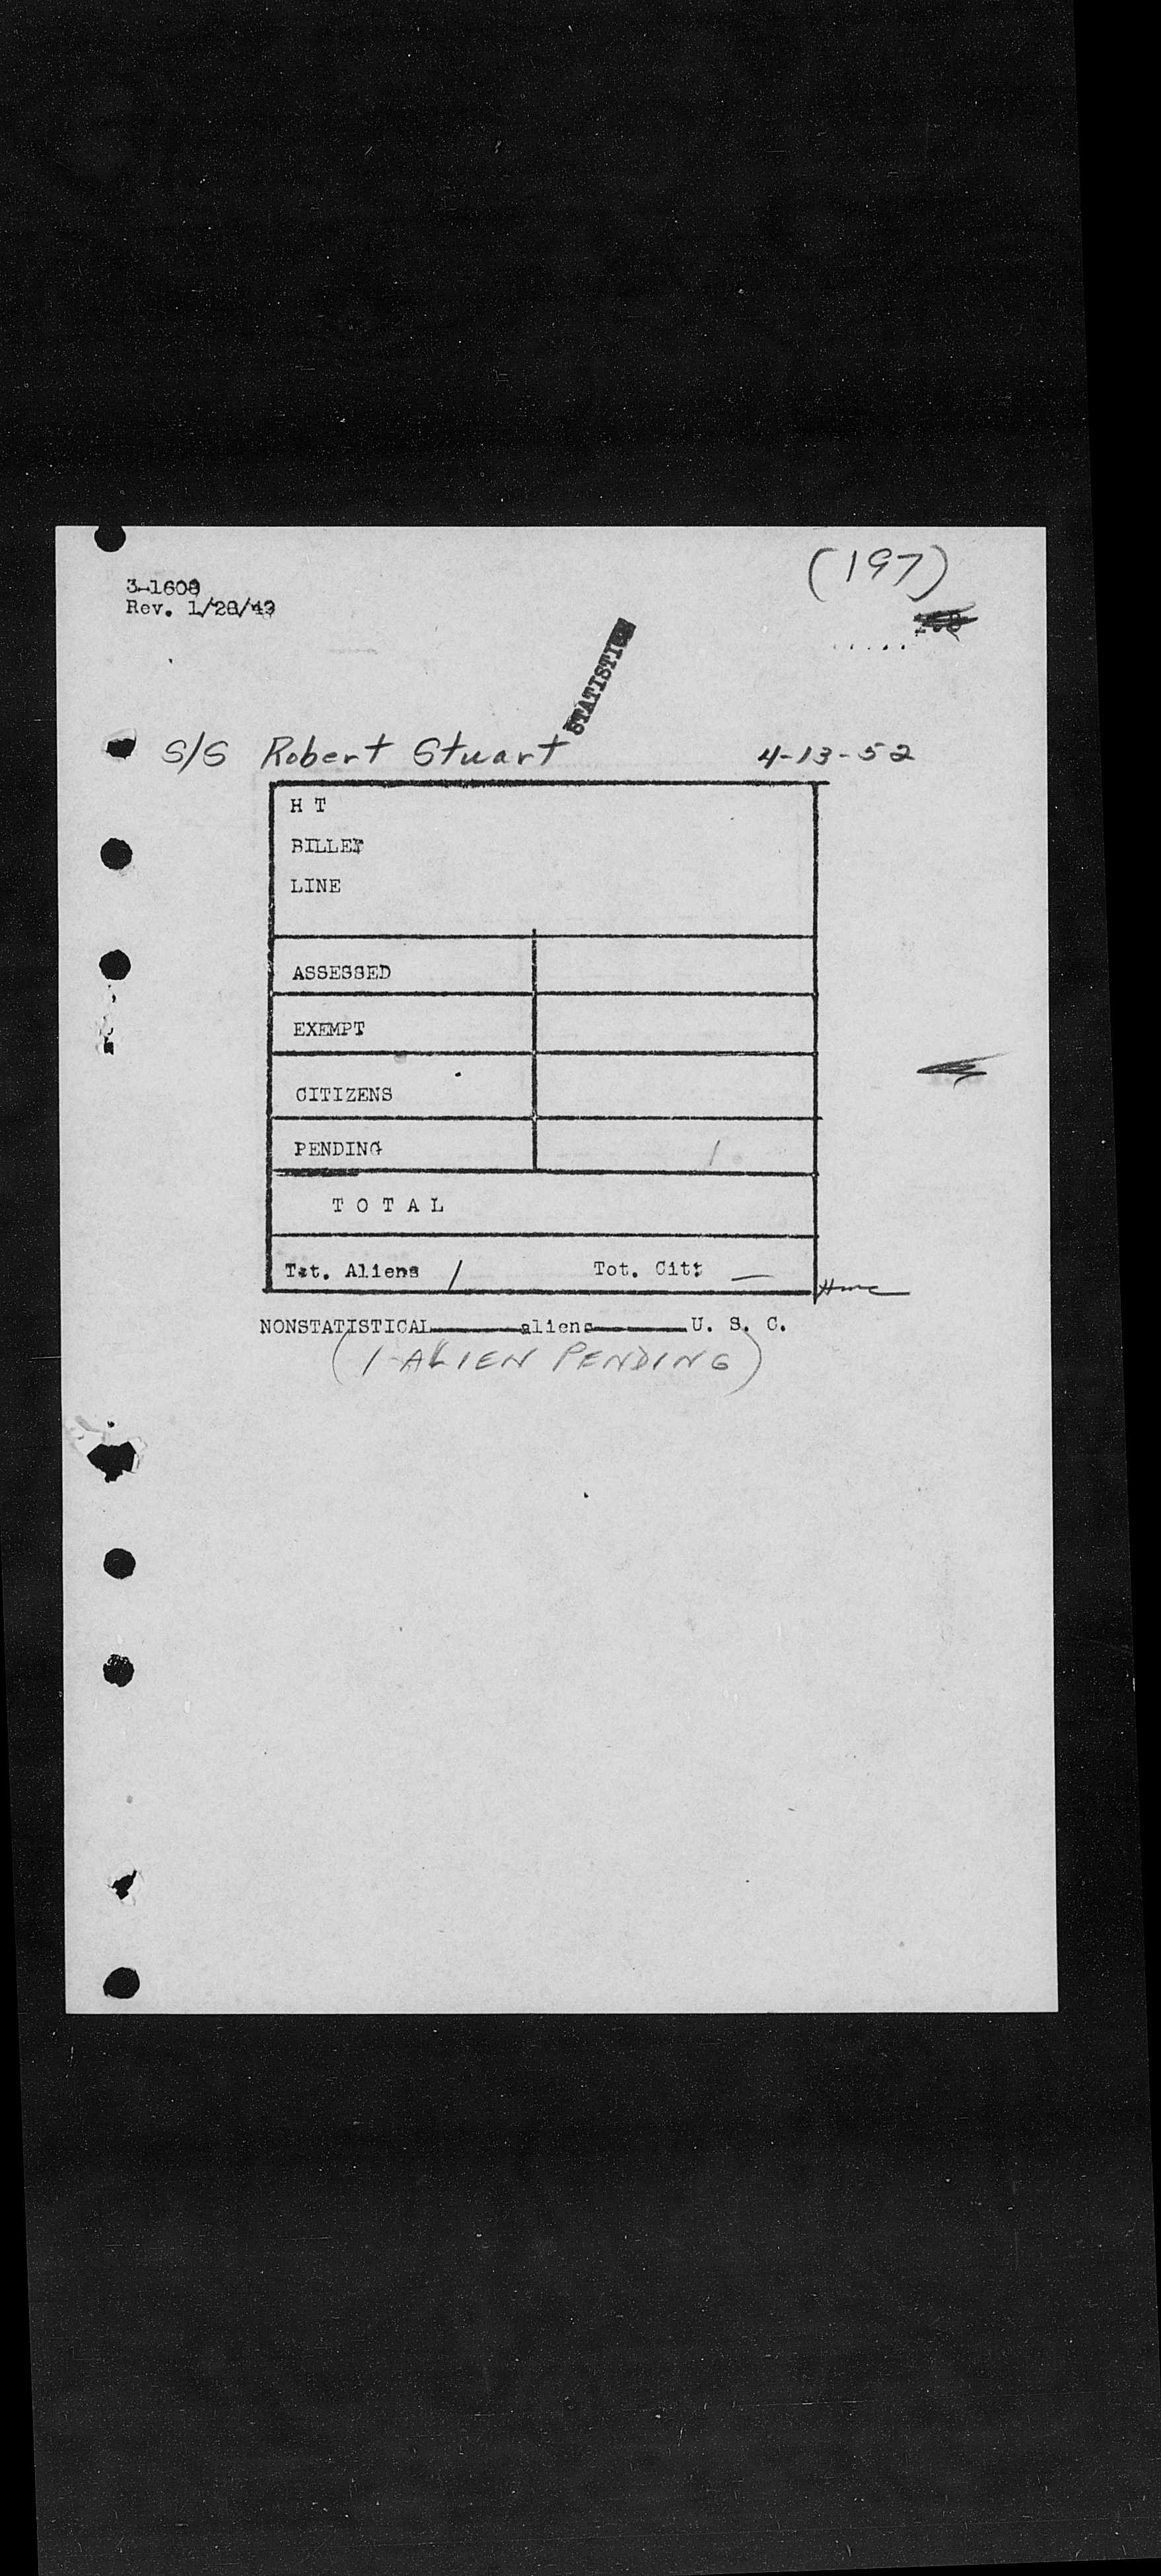 (197)
3-1608
Rev. 1/28/49
STATISTICS
S/S Robert Stuart 4-13-52
H T
BILLET
LINE
ASSESSED
EXEMPT
CITIZENS
PENDING 1
T O T A L
Tot. Aliens 1 Tot. Cit: —
NONSTATISTICAL aliens U. S. C.
(1 ALIEN PENDING)